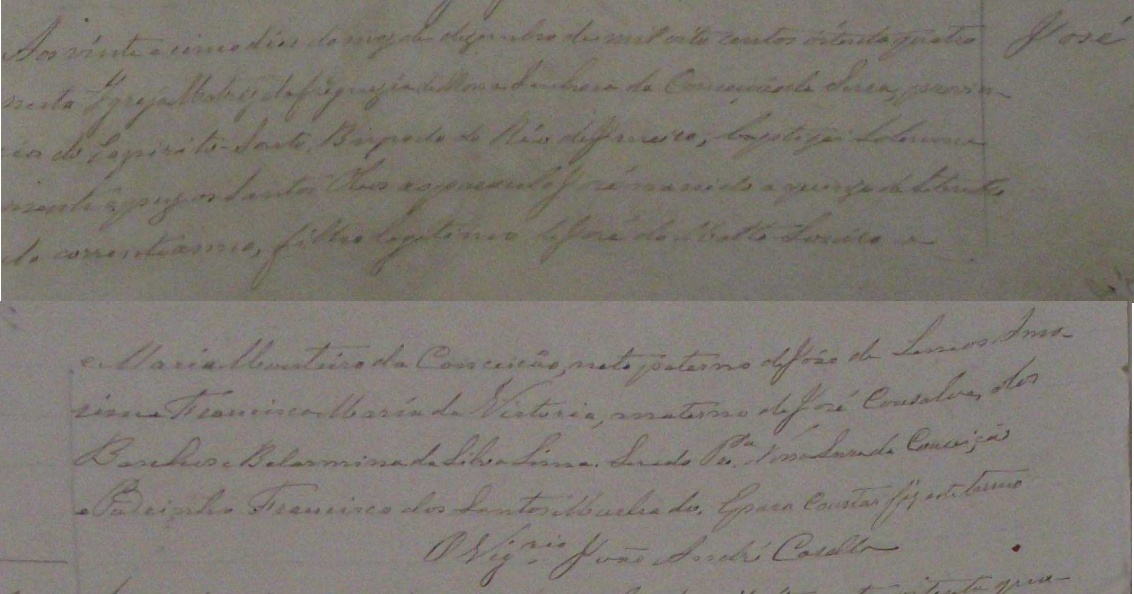 José
Aos vinte e cinco dias do mez de dezembro de mil oito centos oitenta quatro
nesta Igreja Matriz da freguezia de Nossa Senhora da Conceição da Serra, provin-
cia do Espirito-Santo, Bispado do Rio de Janeiro, baptizei Solemne
mente e puz os Santos Oleos a José nascido a quinze de
do corrente anno, filho legitimo de José da Motta e
e Maria Monteiro da Conceição, neto paterno de João de
Francisca Maria da Victoria, materno de José dos
e Belarmina da Silva Lima. Sendo Pª. Nossa Snra da Conceição
e Padrinho Francisco dos Santos Machado. E para constar fiz este termo
O Vigrio João André Casella